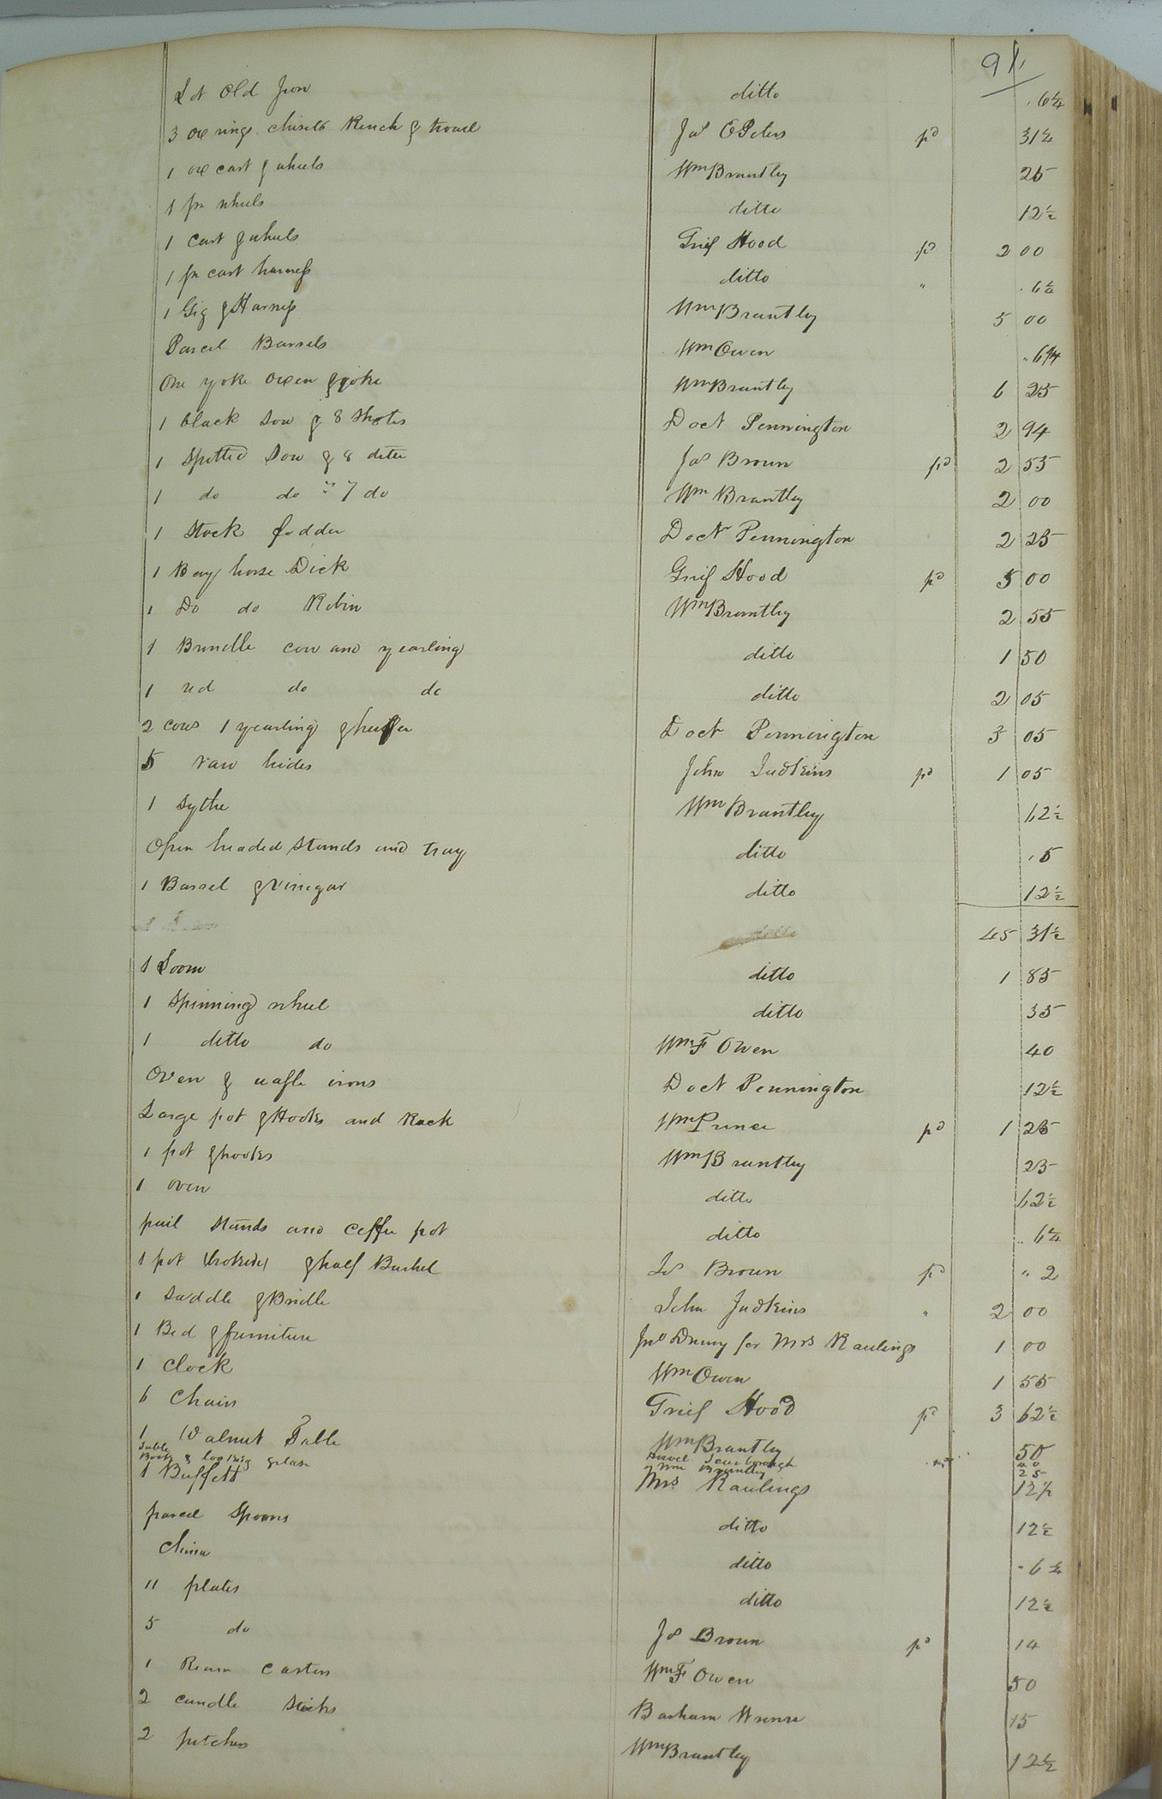 91
Lot Old Iron ditto . 6¼
3 ox rings chisels & trowel Jas pd 31¼
1 ox cart & wheels Wm Brantley 25
1 pr wheels ditto 12½
1 Cart & wheels Grief Hood pd 2 00
1 pr cart harness ditto " . 6¼
1 Gig & Harness Wm Brantley 5 00
Parcel Barrels Wm Owen . 6¼
One yoke oxen & yoke Wm Brantley 6 25
1 black Sow & 8 Shotes Doct Pennington 2 94
1 Spotted Sow & 8 ditto Jas Brown pd 2 55
1 do do " 7 do Wm Brantley 2 00
1 Stack fodder Doct Pennington 2 25
1 Bay horse Dick Grief Hood pd 5 00
1 Do do Robin Wm Brantley 2 55
1 Brindle cow and yearling ditto 1 50
1 red do do ditto 2 05
2 cows 1 yearling & heifer Doct Pennington 3 05
5 raw hides John Judkins pd 1 05
1 Sythe Wm Brantley 62½
Open headed Stands and tray ditto . 5
1 Barrel & vinegar ditto 12½
45 31½
1 Loom ditto 1 85
1 Spinning wheel ditto 35
1 ditto do Wm F Owen 40
Oven & waffle irons Doct Pennington 12½
Large pot & Hooks and Rack Wm Prince pd 1 25
1 pot & hooks Wm Brantley 25
1 oven ditto 62½
pail Stands and coffee pot ditto .. 6¼
1 pot (broken) & half Bushel Js Brown pd " 2
1 Saddle & Bridle John Judkins " 2 00
1 Bed & furniture Jno Drury for Mrs Rawlings 1 00
1 Clock Wm Owen 1 55
6 Chairs Grief Hood pd 3 62½
1 Walnut Table Wm Brantley 50
Table & looking glass
Wm Brantley 25
1 Buffett Mrs Rawlings 12½
parcel Spoons ditto 12½
China ditto - 6¼
11 plates ditto 12½
5 do Js Brown pd 14
1 castors Wm F Owen 50
2 candle Sticks Barham 15
2 pitchers Wm Brantley 12½